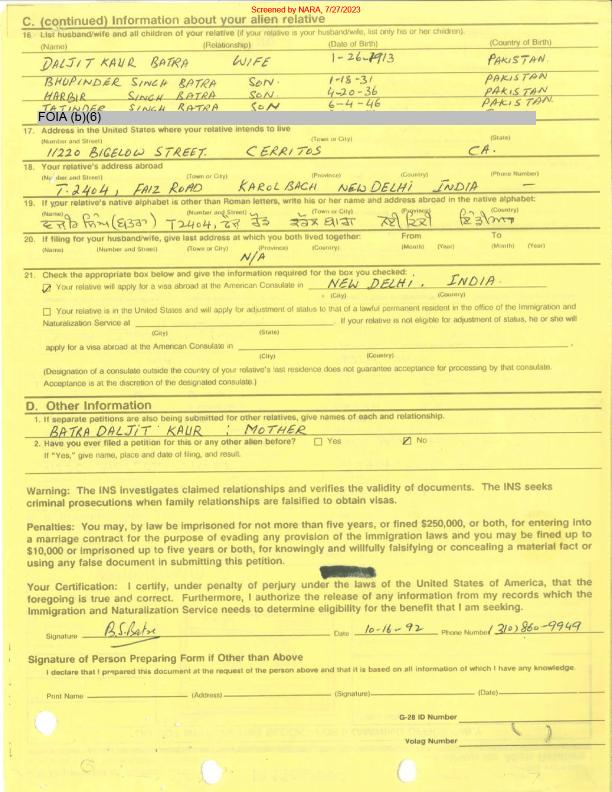 Screened by NARA, 7/27/2023
C. (continued) Information about your alien relative
16. List husband/wife and all children of your relative (if your relative is your husband/wife, list only his or her children).
(Name) (Relationship) (Date of Birth) (Country of Birth)
DALJIT KAUR BATRA WIFE 1-26-1913 PAKISTAN.
BHUPINDER SINGH BATRA SON. 1-18-31 PAKISTAN
HARBIR SINGH BATRA SON. 4-20-36 PAKISTAN
TATINDER SINGH BATRA SON 6-4-46 PAKISTAN.
FOIA (b)(6)
17. Address in the United States where your relative intends to live
(Number and Street) (Town or City) (State)
11220 BIGELOW STREET. CERRITOS CA.
18. Your relative's address abroad
(Number and Street) (Town or City) (Province) (Country) (Phone Number)
T-2404, FAIZ ROAD KAROL BAGH NEW DELHI INDIA —
19. If your relative's native alphabet is other than Roman letters, write his or her name and address abroad in the native alphabet:
(Name) (Number and Street) (Town or City) (Province) (Country)
ਸਿੰਘ (ਬਤਰਾ) T 2404, ਰੋਡ ਬਾਗ
20. If filing for your husband/wife, give last address at which you both lived together: From To
(Name) (Number and Street) (Town or City) (Province) (Country) (Month) (Year) (Month) (Year)
N/A
21. Check the appropriate box below and give the information required for the box you checked:
Your relative will apply for a visa abroad at the American Consulate in NEW DELHI. INDIA.
(City) (Country)
Your relative is in the United States and will apply for adjustment of status to that of a lawful permanent resident in the office of the Immigration and
Naturalization Service at . If your relative is not eligible for adjustment of status, he or she will
(City) (State)
apply for a visa abroad at the American Consulate in .
(City) (Country)
(Designation of a consulate outside the country of your relative's last residence does not guarantee acceptance for processing by that consulate.
Acceptance is at the discretion of the designated consulate.)
D. Other Information
1. If separate petitions are also being submitted for other relatives, give names of each and relationship.
BATRA DALJIT KAUR : MOTHER
2. Have you ever filed a petition for this or any other alien before? Yes No
If "Yes," give name, place and date of filing, and result.
Warning: The INS investigates claimed relationships and verifies the validity of documents. The INS seeks
criminal prosecutions when family relationships are falsified to obtain visas.
Penalties: You may, by law be imprisoned for not more than five years, or fined $250,000, or both, for entering into
a marriage contract for the purpose of evading any provision of the immigration laws and you may be fined up to
$10,000 or imprisoned up to five years or both, for knowingly and willfully falsifying or concealing a material fact or
using any false document in submitting this petition.
Your Certification: I certify, under penalty of perjury under the laws of the United States of America, that the
foregoing is true and correct. Furthermore, I authorize the release of any information from my records which the
Immigration and Naturalization Service needs to determine eligibility for the benefit that I am seeking.
Signature B.S.Batra Date 10-16-92 Phone Number (310) 860-9949
Signature of Person Preparing Form if Other than Above
I declare that I prepared this document at the request of the person above and that it is based on all information of which I have any knowledge.
Print Name (Address) (Signature) (Date)
G-28 ID Number
Volag Number